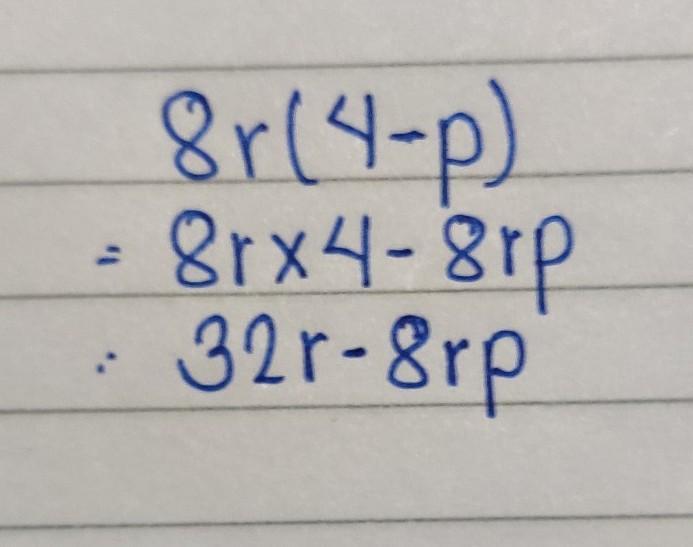 8r(4-p)
= 8r×4-8rp
∴ 32r-8rp